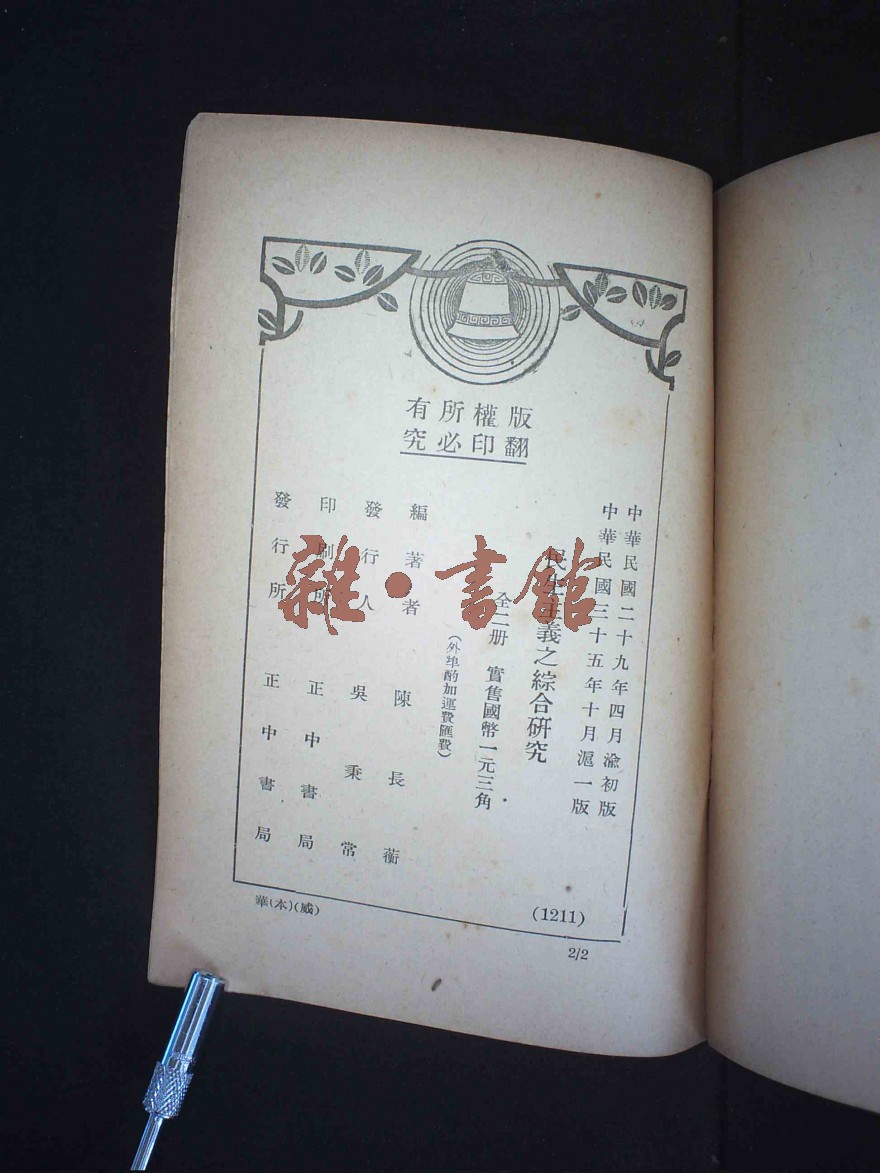 版權所有
翻印必究
中華民國二十九年四月渝初版
中華民國三十五年十月滬一版
民生主義之綜合研究
全一册 實售國幣一元三角
(外埠酌加運費匯費)
編著者 陳長蘅
發行人 吳秉常
印刷所 正中書局
發行所 正中書局
(1211)
華(本)(威)
2/2
雜·書館